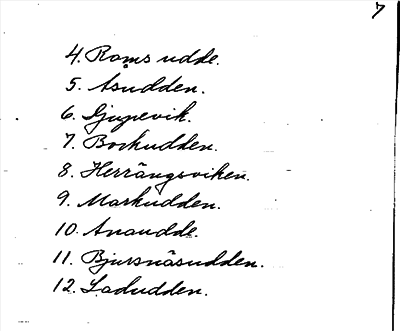 7
4. Roms udde.
5. Asudden.
6. Djupevik.
7. Bockudden.
8. Herrängsviken.
9. Markudden.
10. Anaudde.
11. Bjursnäsudden.
12. Ladudden.